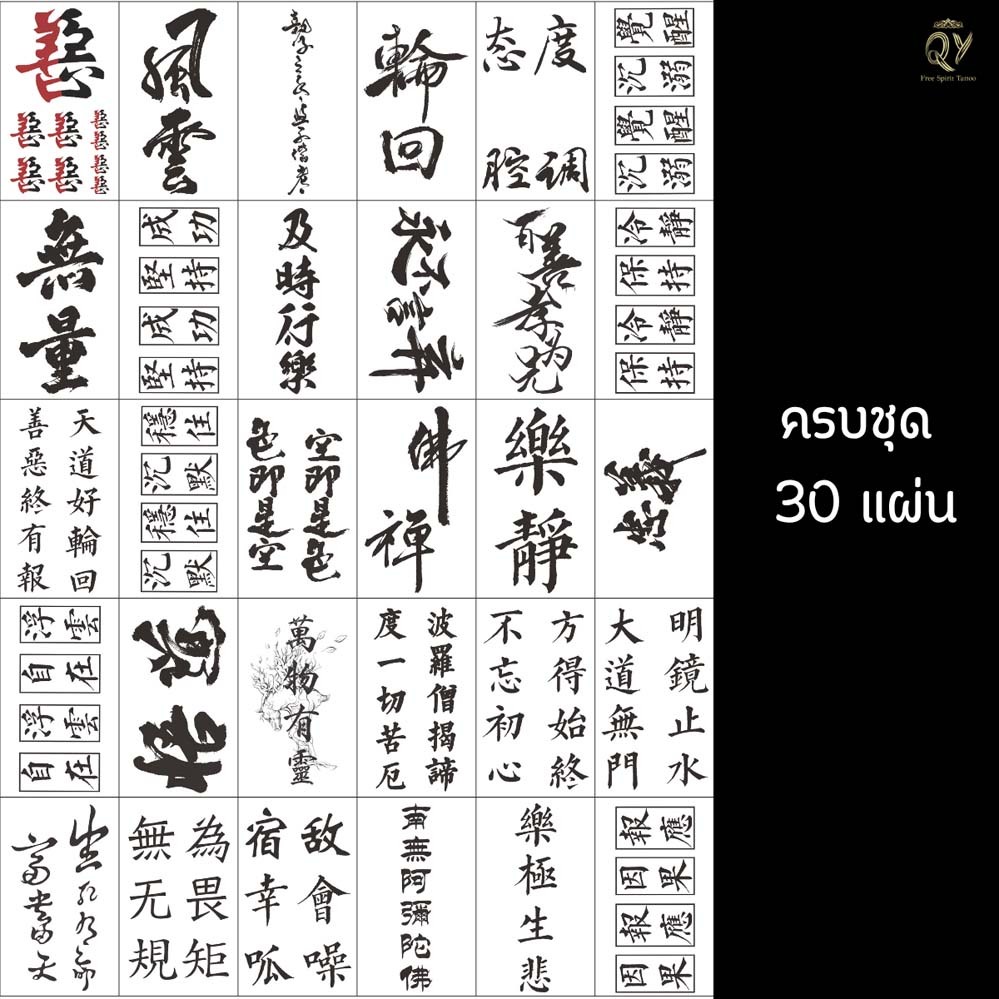 QY
Free Spirit Tattoo
風雲
輪回
态度
腔调
覺醒
沉溺
覺醒
沉溺
無量
成功
堅持
成功
堅持
及時行樂
百善孝為先
冷靜
保持
冷靜
保持
天道好輪回
善惡終有報
穩住
沉默
穩住
沉默
空即是色
色即是空
佛
禪
樂靜
忠義
浮雲
自在
浮雲
自在
萬物有靈
波羅僧揭諦
度一切苦厄
方得始終
不忘初心
明鏡止水
大道無門
生死有命
富貴在天
為畏矩
無无規
敌會噪
宿幸呱
南無阿彌陀佛
樂極生悲
報應
因果
報應
因果
ครบชุด
30 แผ่น